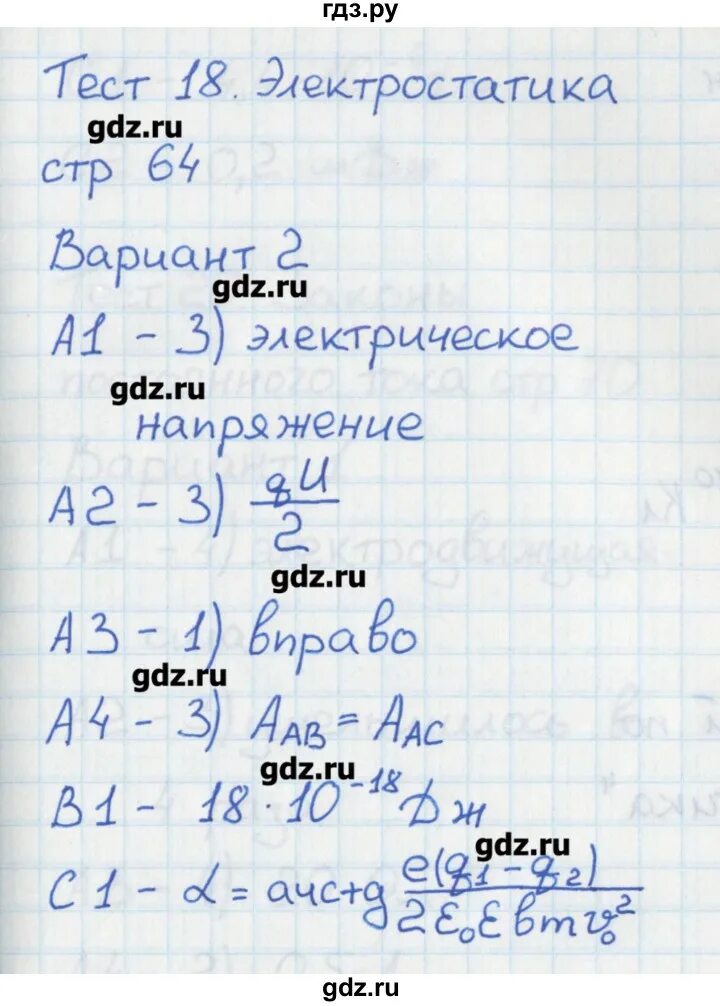 гдз.ру
Тест 18. Электростатика
gdz.ru
стр 64
Вариант 2
gdz.ru
А1 - 3) электрическое
gdz.ru
напряжение
А2 - 3) qU/2
gdz.ru
А3 - 1) вправо
gdz.ru
А4 - 3) A_AB = A_AC
gdz.ru
В1 - 18·10^-18 Дж
gdz.ru
С1 - α = aчc+g e(q1-q2)/2ε₀εbmv₀²
gdz.ru